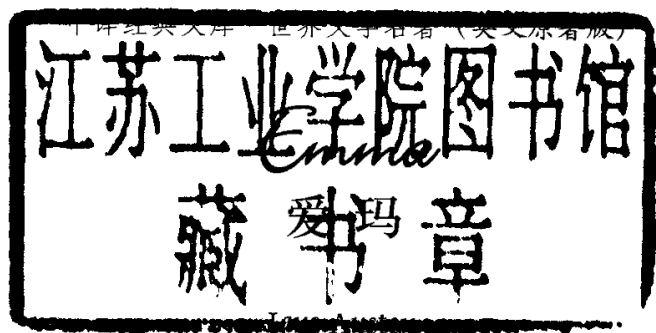 中译经典文库·世界文学名著(英文原著版)
江苏工业学院图书馆
Emma
爱玛
藏书章
Jane Austen